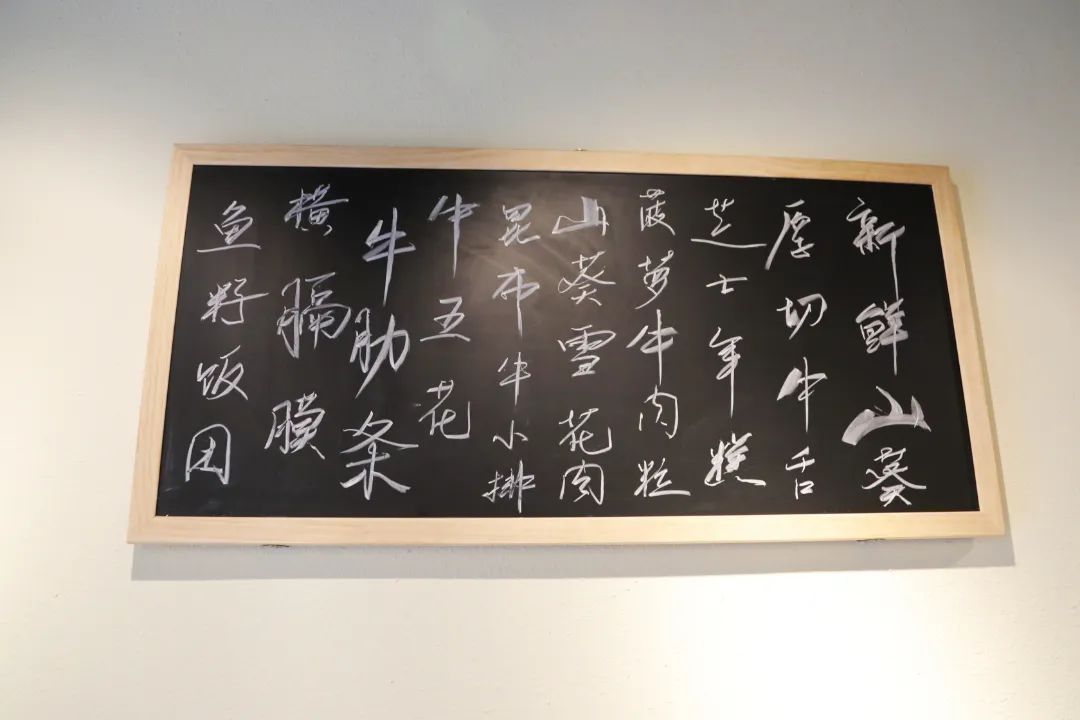 新鲜山葵
厚切牛舌
芝士年糕
菠萝牛肉粒
山葵雪花肉
昆布牛小排
牛五花
牛肋条
横隔膜
鱼籽饭团